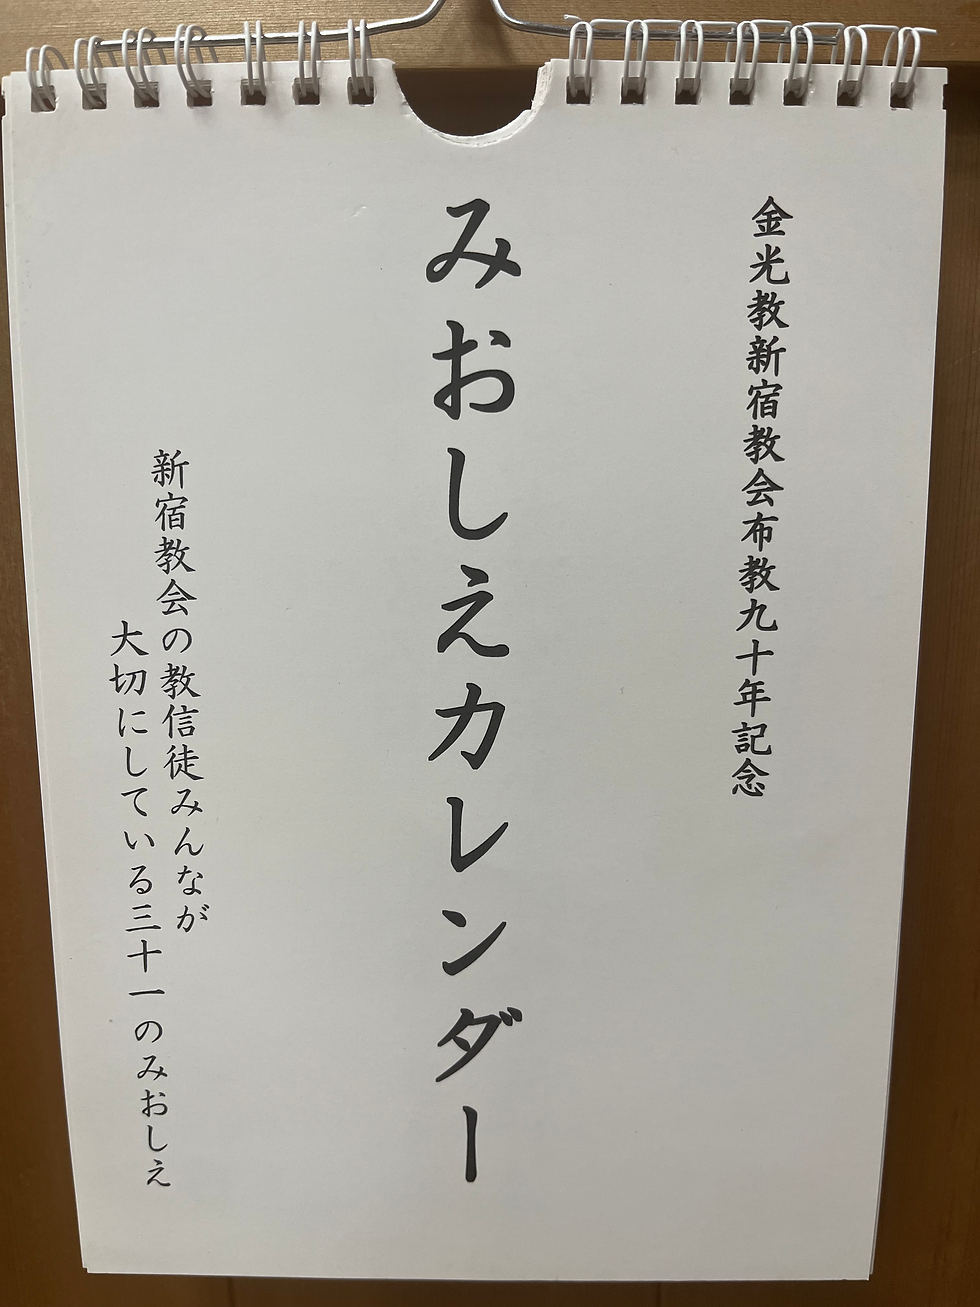 金光教新宿教会布教九十年記念
みおしえカレンダー
新宿教会の教信徒みんなが
大切にしている三十一のみおしえ